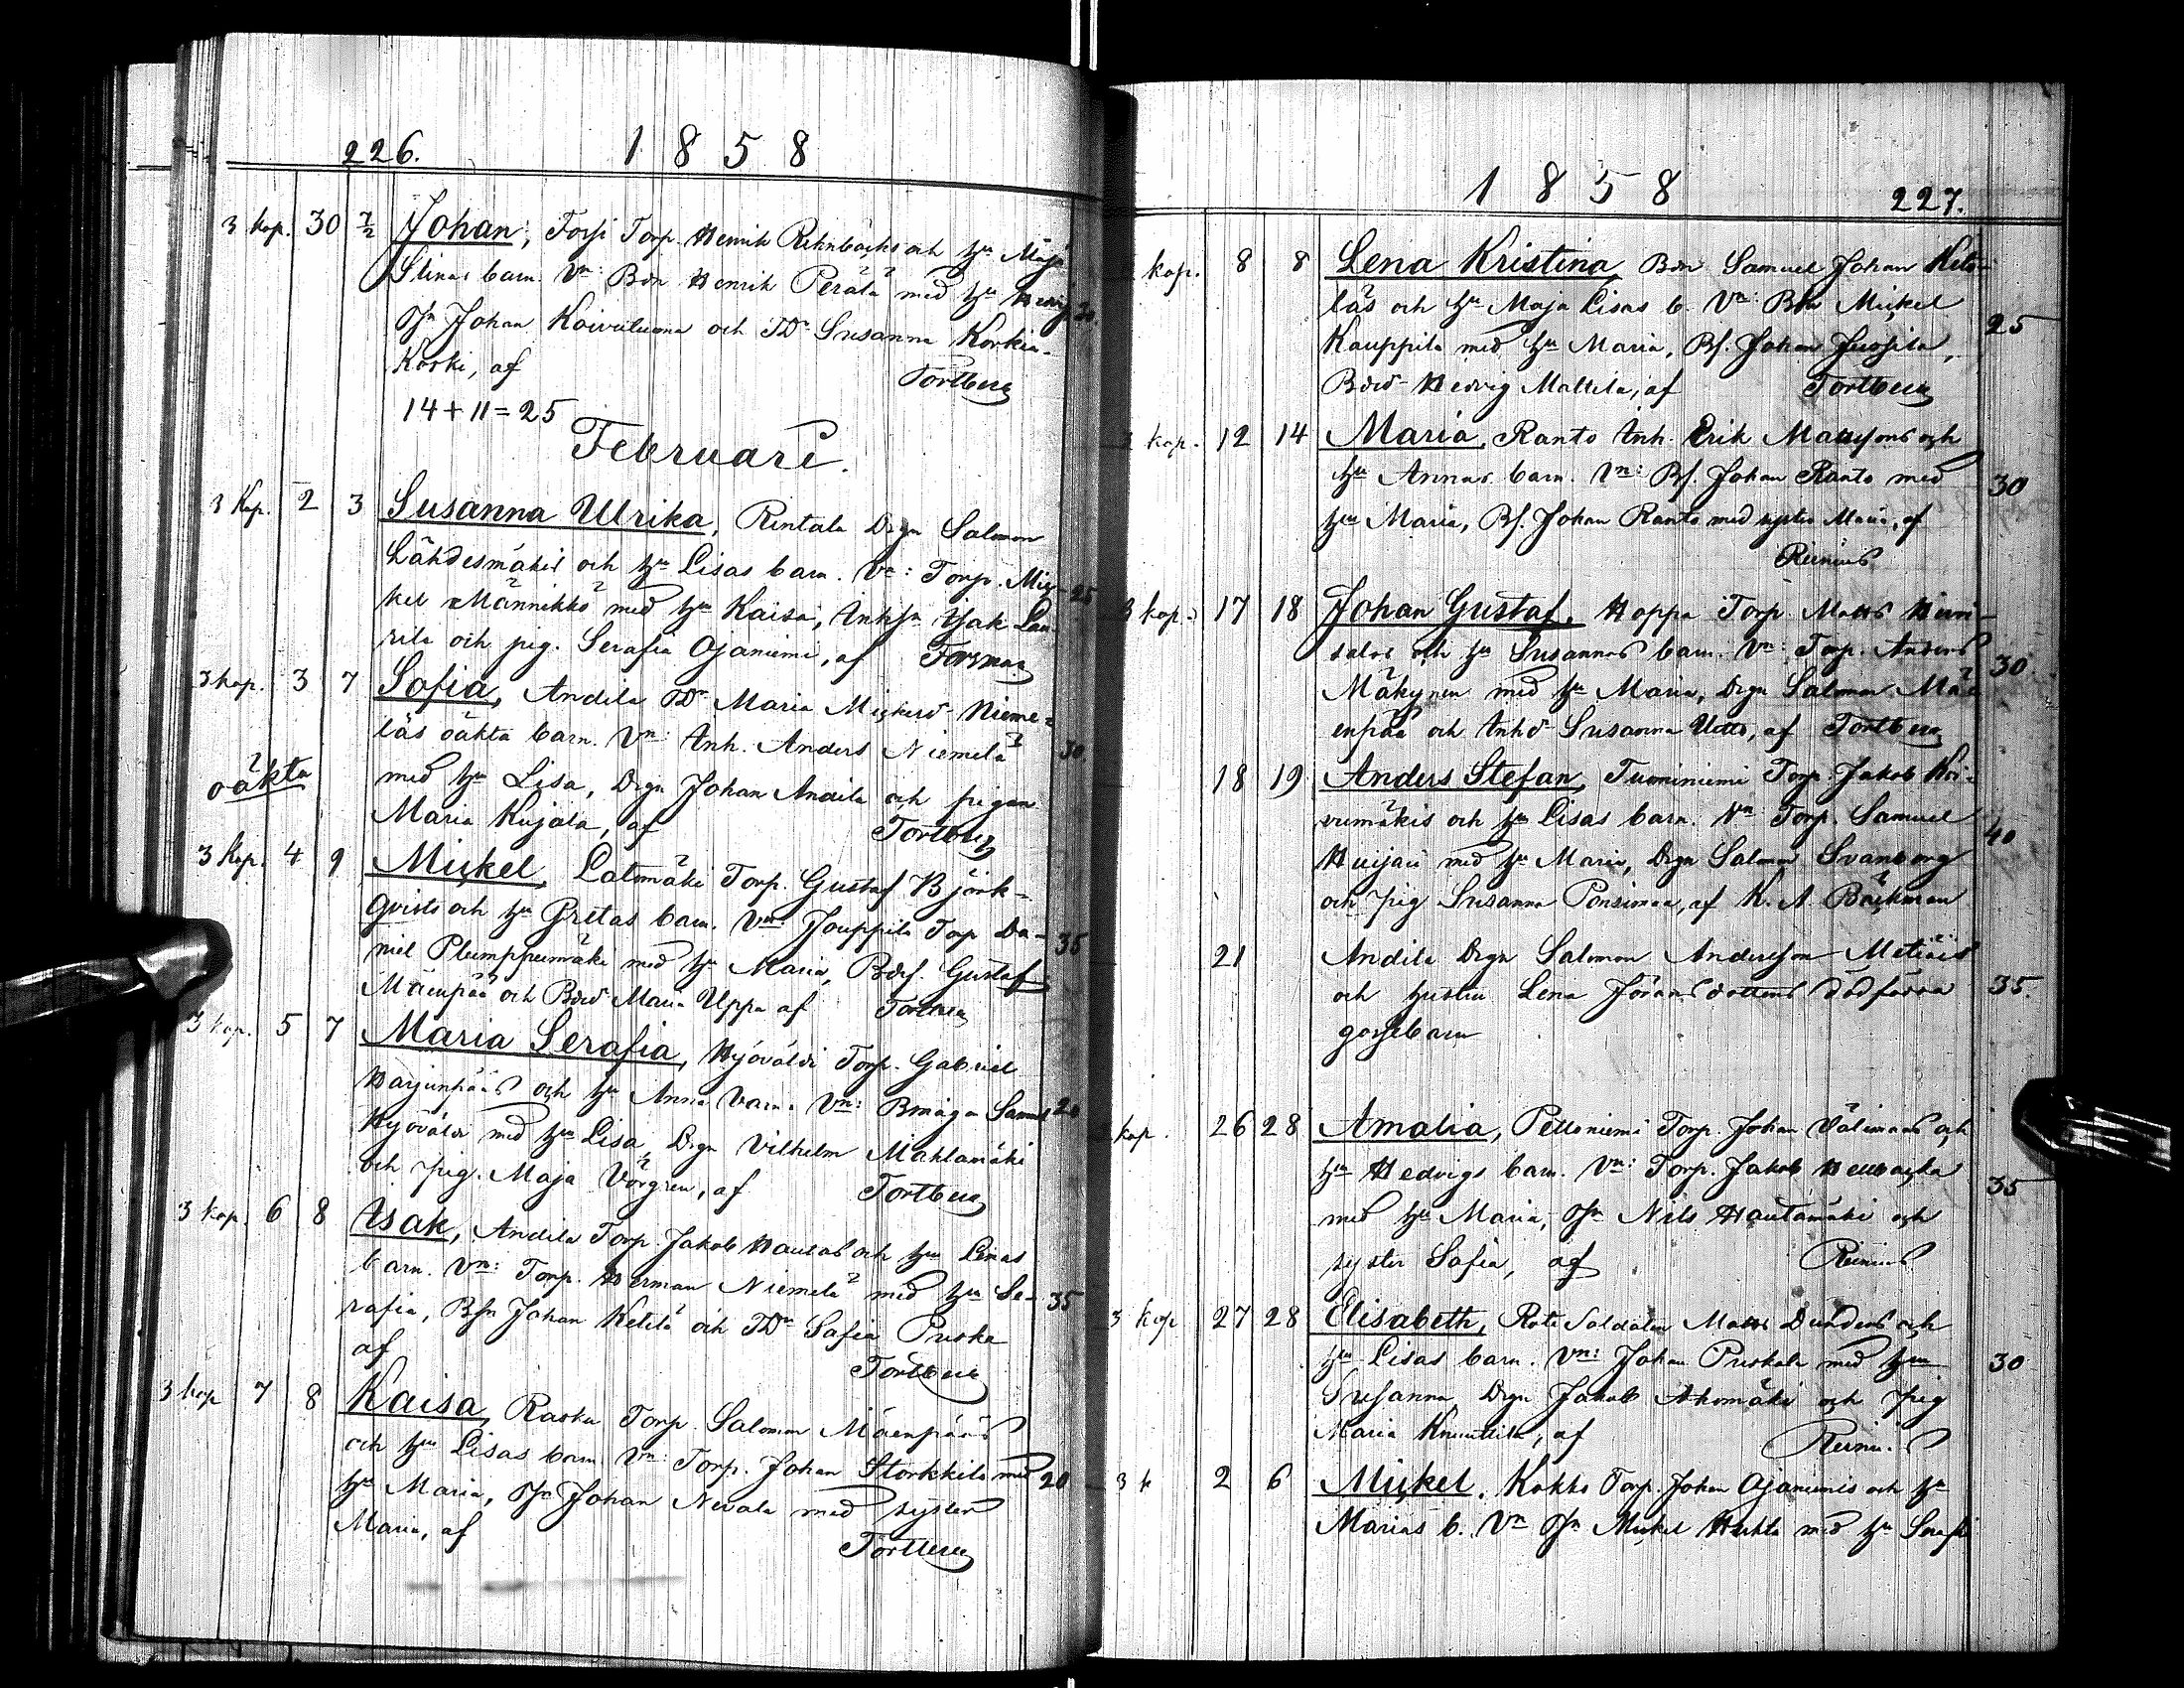 226. 1858
3 kop. 30 7/2 Johan, Torp. Henrik Rehnbäcks och hu Maja
Stinas barn. Vn: Bdn Henrik Perälä med hu Hedvig 20.
Johan Koivuluoma och TDr Susanna Korkia-
koski, af Tortberg
14+11=25
Februari.
3 Kop. 2 3 Susanna Ulrika, Rintala Drgn Salomon
Lähdesmäkis och hu Lisas barn. Vn: Torp. Mic- 25
kel Männikkö med hu Kaisa, Isak Lau-
rila och pig. Serafia Ojaniemi, af Forsman
3 kop. 3 7 Sofia, Andila TDr Maria Mickelsd. Nieme-
läs oäkta barn. Vn: Inh. Anders Niemelä 30.
oäkta
med hu Lisa, Drgn Johan Andila och pigan
Maria Kujala, af Tortberg
3 Kop. 4 9 Mickel, Latomäki Torp. Gustaf Björk-
qvists och hu Gretas barn. Vn: Jouppila Torp Da- 35
niel Plumppumäki med hu Maria, Gustaf
Mäenpää och Maria Uppa af Tortberg
3 kop. 5 7 Maria Serafia, Hyöväldi Torp. Gabriel
Harjunpääs och hu Anna barn. Vn: Bmåg Samuel 20
Hyöväldi med hu Lisa, Drgn Vilhelm Mahlamäki
och pig. Maja Vörgren, af Tortberg
3 kop. 6 8 Isak, Andila Torp. Jakob Hautas och hu Lenas
barn. Vn: Torp. Herman Niemelä med hu Se- 35
rafia, Johan Ketelä och TDr Sofia Puska
af Tortberg
3 kop 7 8 Kaisa, Rasku Torp. Salomon Mäenpääs
och hu Lisas barn Vn: Torp. Johan Storkkila med 20
hu Maria, Johan Nevala med syster
Maria, af Tortberg
1858 227.
kop. 8 8 Lena Kristina, Bdn Samuel Johan Keto-
läs och hu Maja Lisas b. Vn: Bdn Mickel 25
Kauppila med hu Maria, Johan Juosila,
Hedvig Mattila, af Tortberg
3 kop. 12 14 Maria, Ranto Inh. Erik Mattsons och
hu Annas barn. Vn: Johan Ranto med 30
hu Maria, Johan Ranto med syster Maria, af
Reinius
3 kop. 17 18 Johan Gustaf, Hoppa Torp. Matts Hirvi-
salos och hu Susannas barn. Vn: Torp. Anders 30.
Mäkynen med hu Maria, Drgn Salomon Mä-
enpää och Susanna Uitto, af Tortberg
18 19 Anders Stefan, Tuominiemi Torp. Jakob Koi-
vumäkis och hu Lisas barn. Vn Torp. Samuel 40
Huijari med hu Maria, Drgn Salomon Svanberg
och pig Susanna Ponsimaa, af K. A. Bäckman
21 Andila Drgn Salomon Andersson Metiäis
och hustru Lena Jöransdotters dödfödda 35.
gossebarn
kop. 26 28 Amalia, Peltoniemi Torp. Johan Välimaas och
hu Hedvigs barn. Vn: Torp. Jakob Hellbacka 35
med hu Maria, Nils Hautamäki och
syster Sofia, af Reinius
3 kop 27 28 Elisabeth, Rote Soldaten Matts Dunders och
hu Lisas barn. Vn: Johan Puskala med hu 30
Susanna Drgn Jakob Ahomäki och pig
Maria Knuuttila, af Reinius
3 k 2 6 Mickel, Kokko Torp. Johan Ojaniemis och hu
Marias b. Vn Mickel med hu Serafia